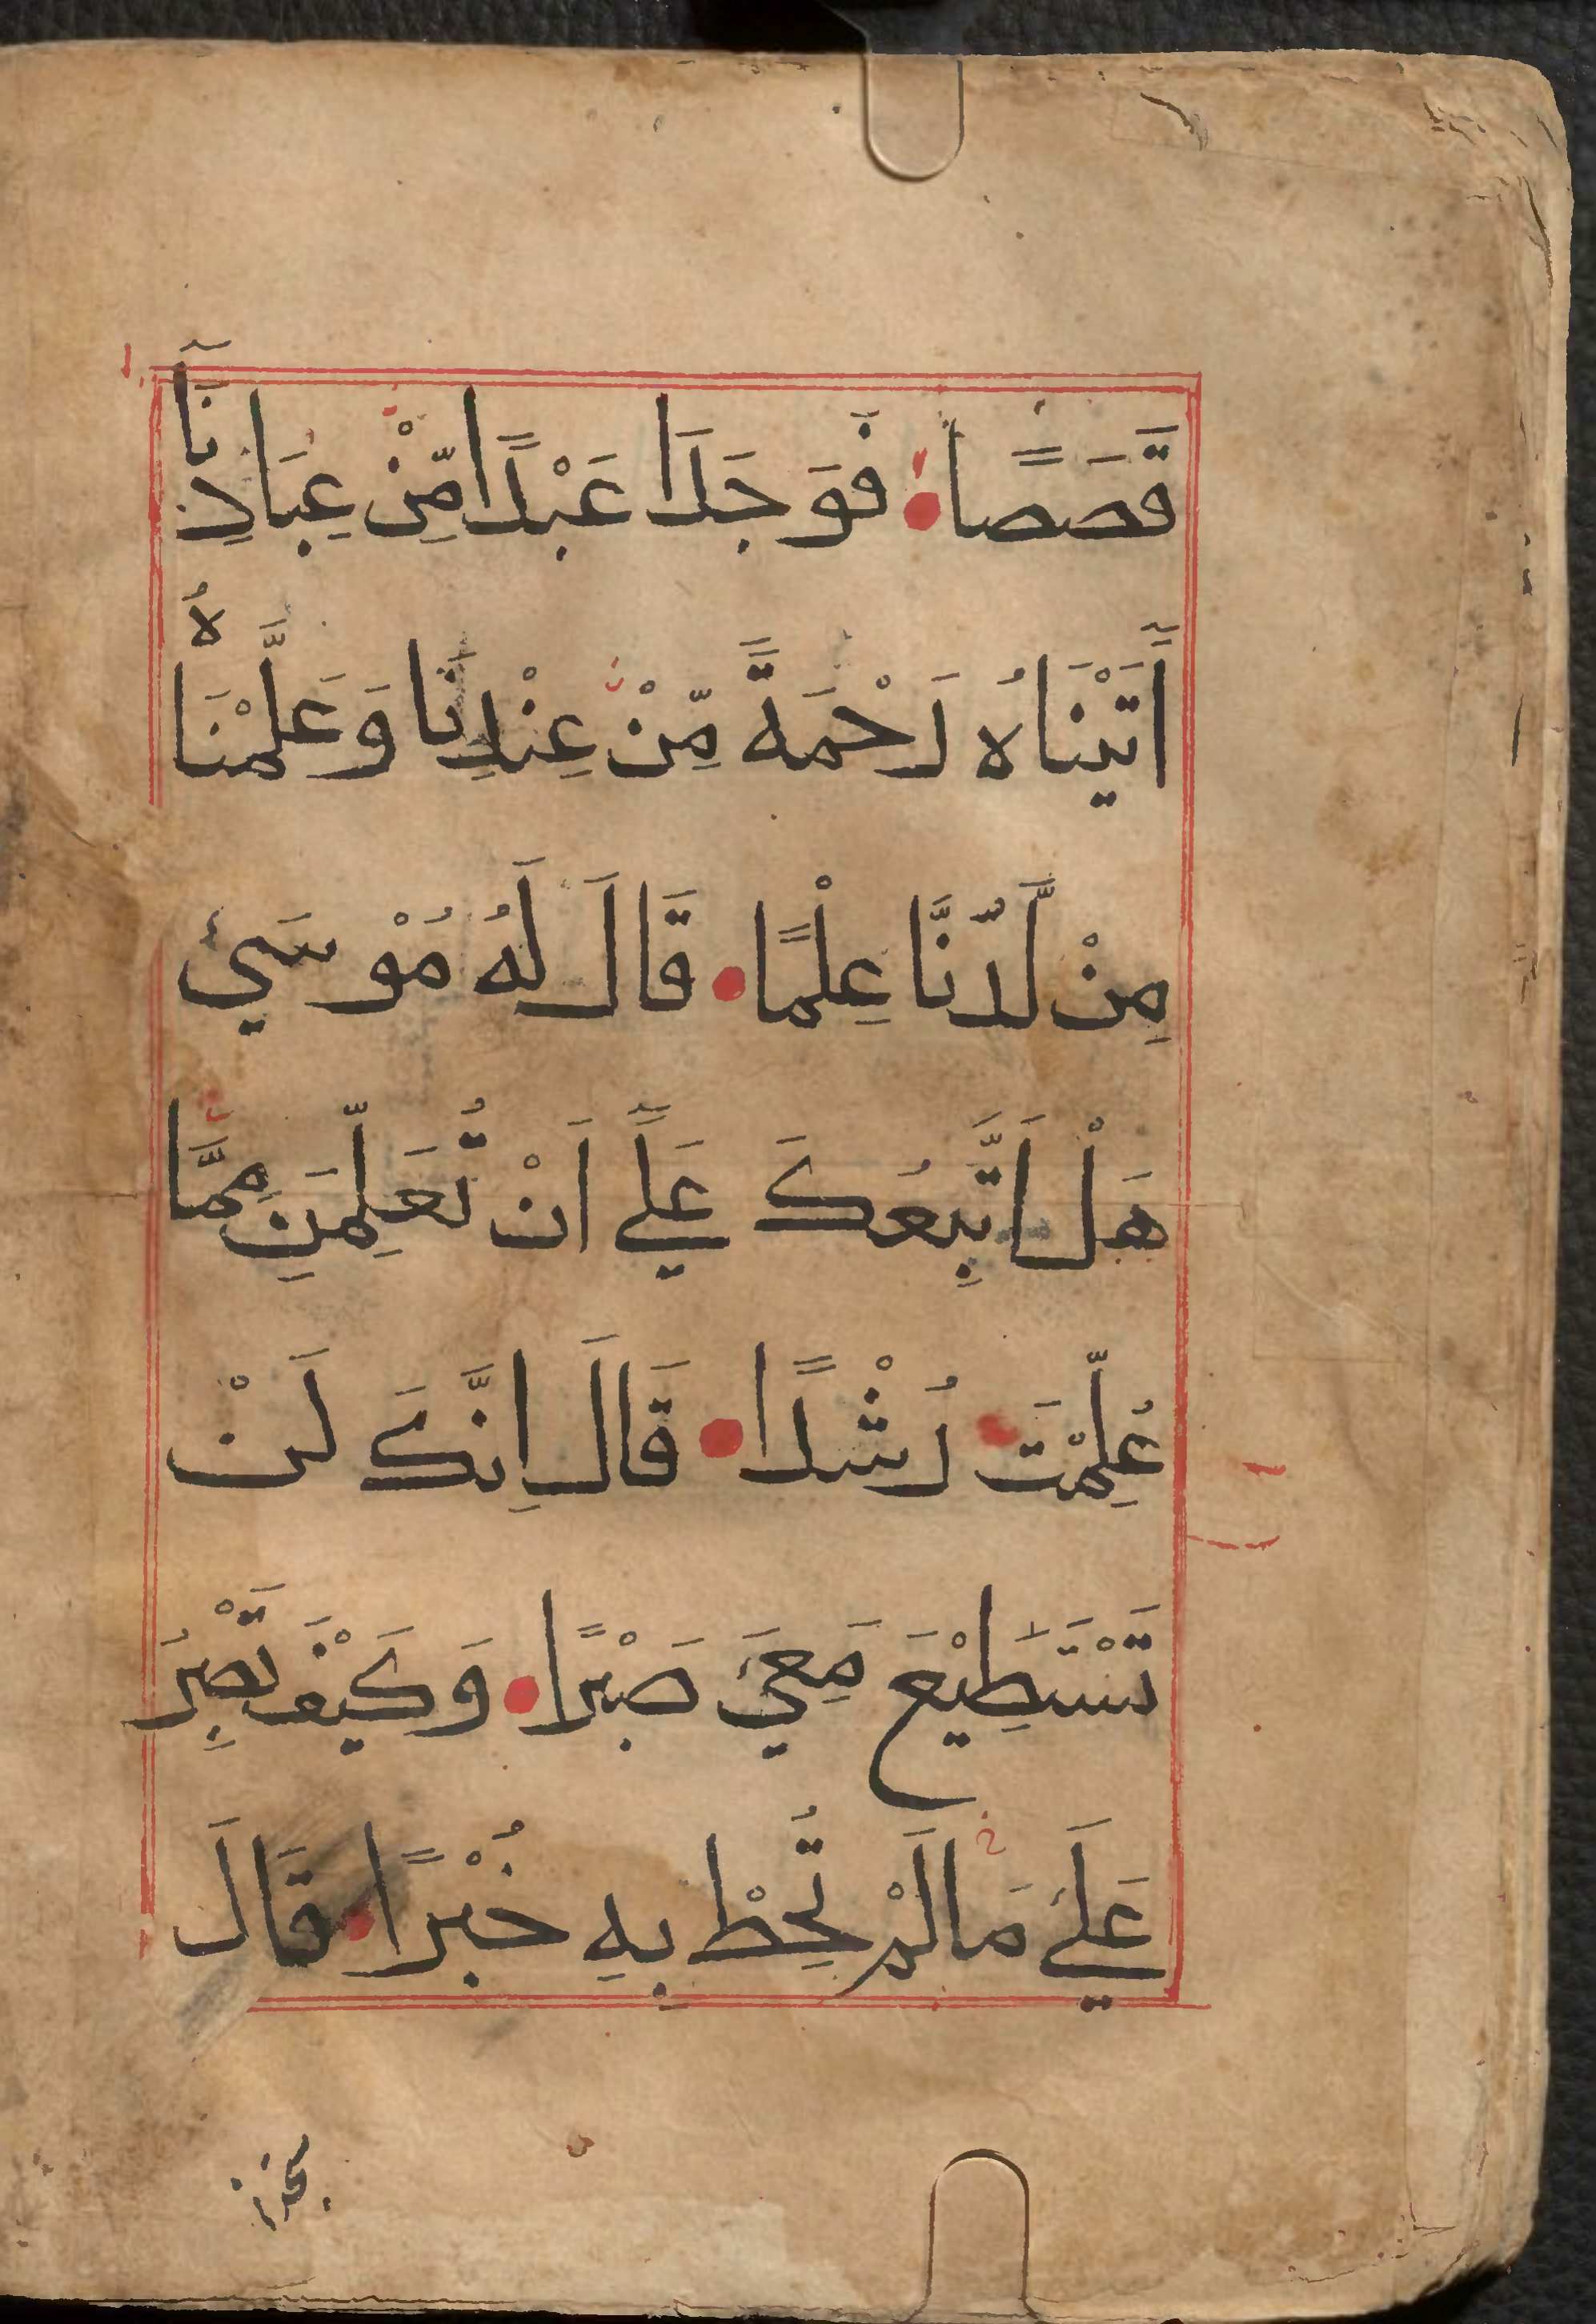 قَصَصًا فَوَجَدَا عَبْدًا مِّنْ عِبَادِنَآ
أٰتَيْنَاهُ رَحْمَةً مِّنْ عِنْدِنَا وَعَلَّمْنَاهُ
مِنْ لَّدُنَّا عِلْمًا قَالَ لَهُ مُوْسَىٰ
هَلْ اَتَّبِعُكَ عَلَىٓ اَنْ تُعَلِّمَنِ مِمَّا
عُلِّمْتَ رُشْدًا قَالَ اِنَّكَ لَنْ
تَسْتَطِيْعَ مَعِيَ صَبْرًا وَكَيْفَ تَصْبِرُ
عَلَىٰ مَالَمْ تُحِطْ بِهِ خُبْرًا قَالَ